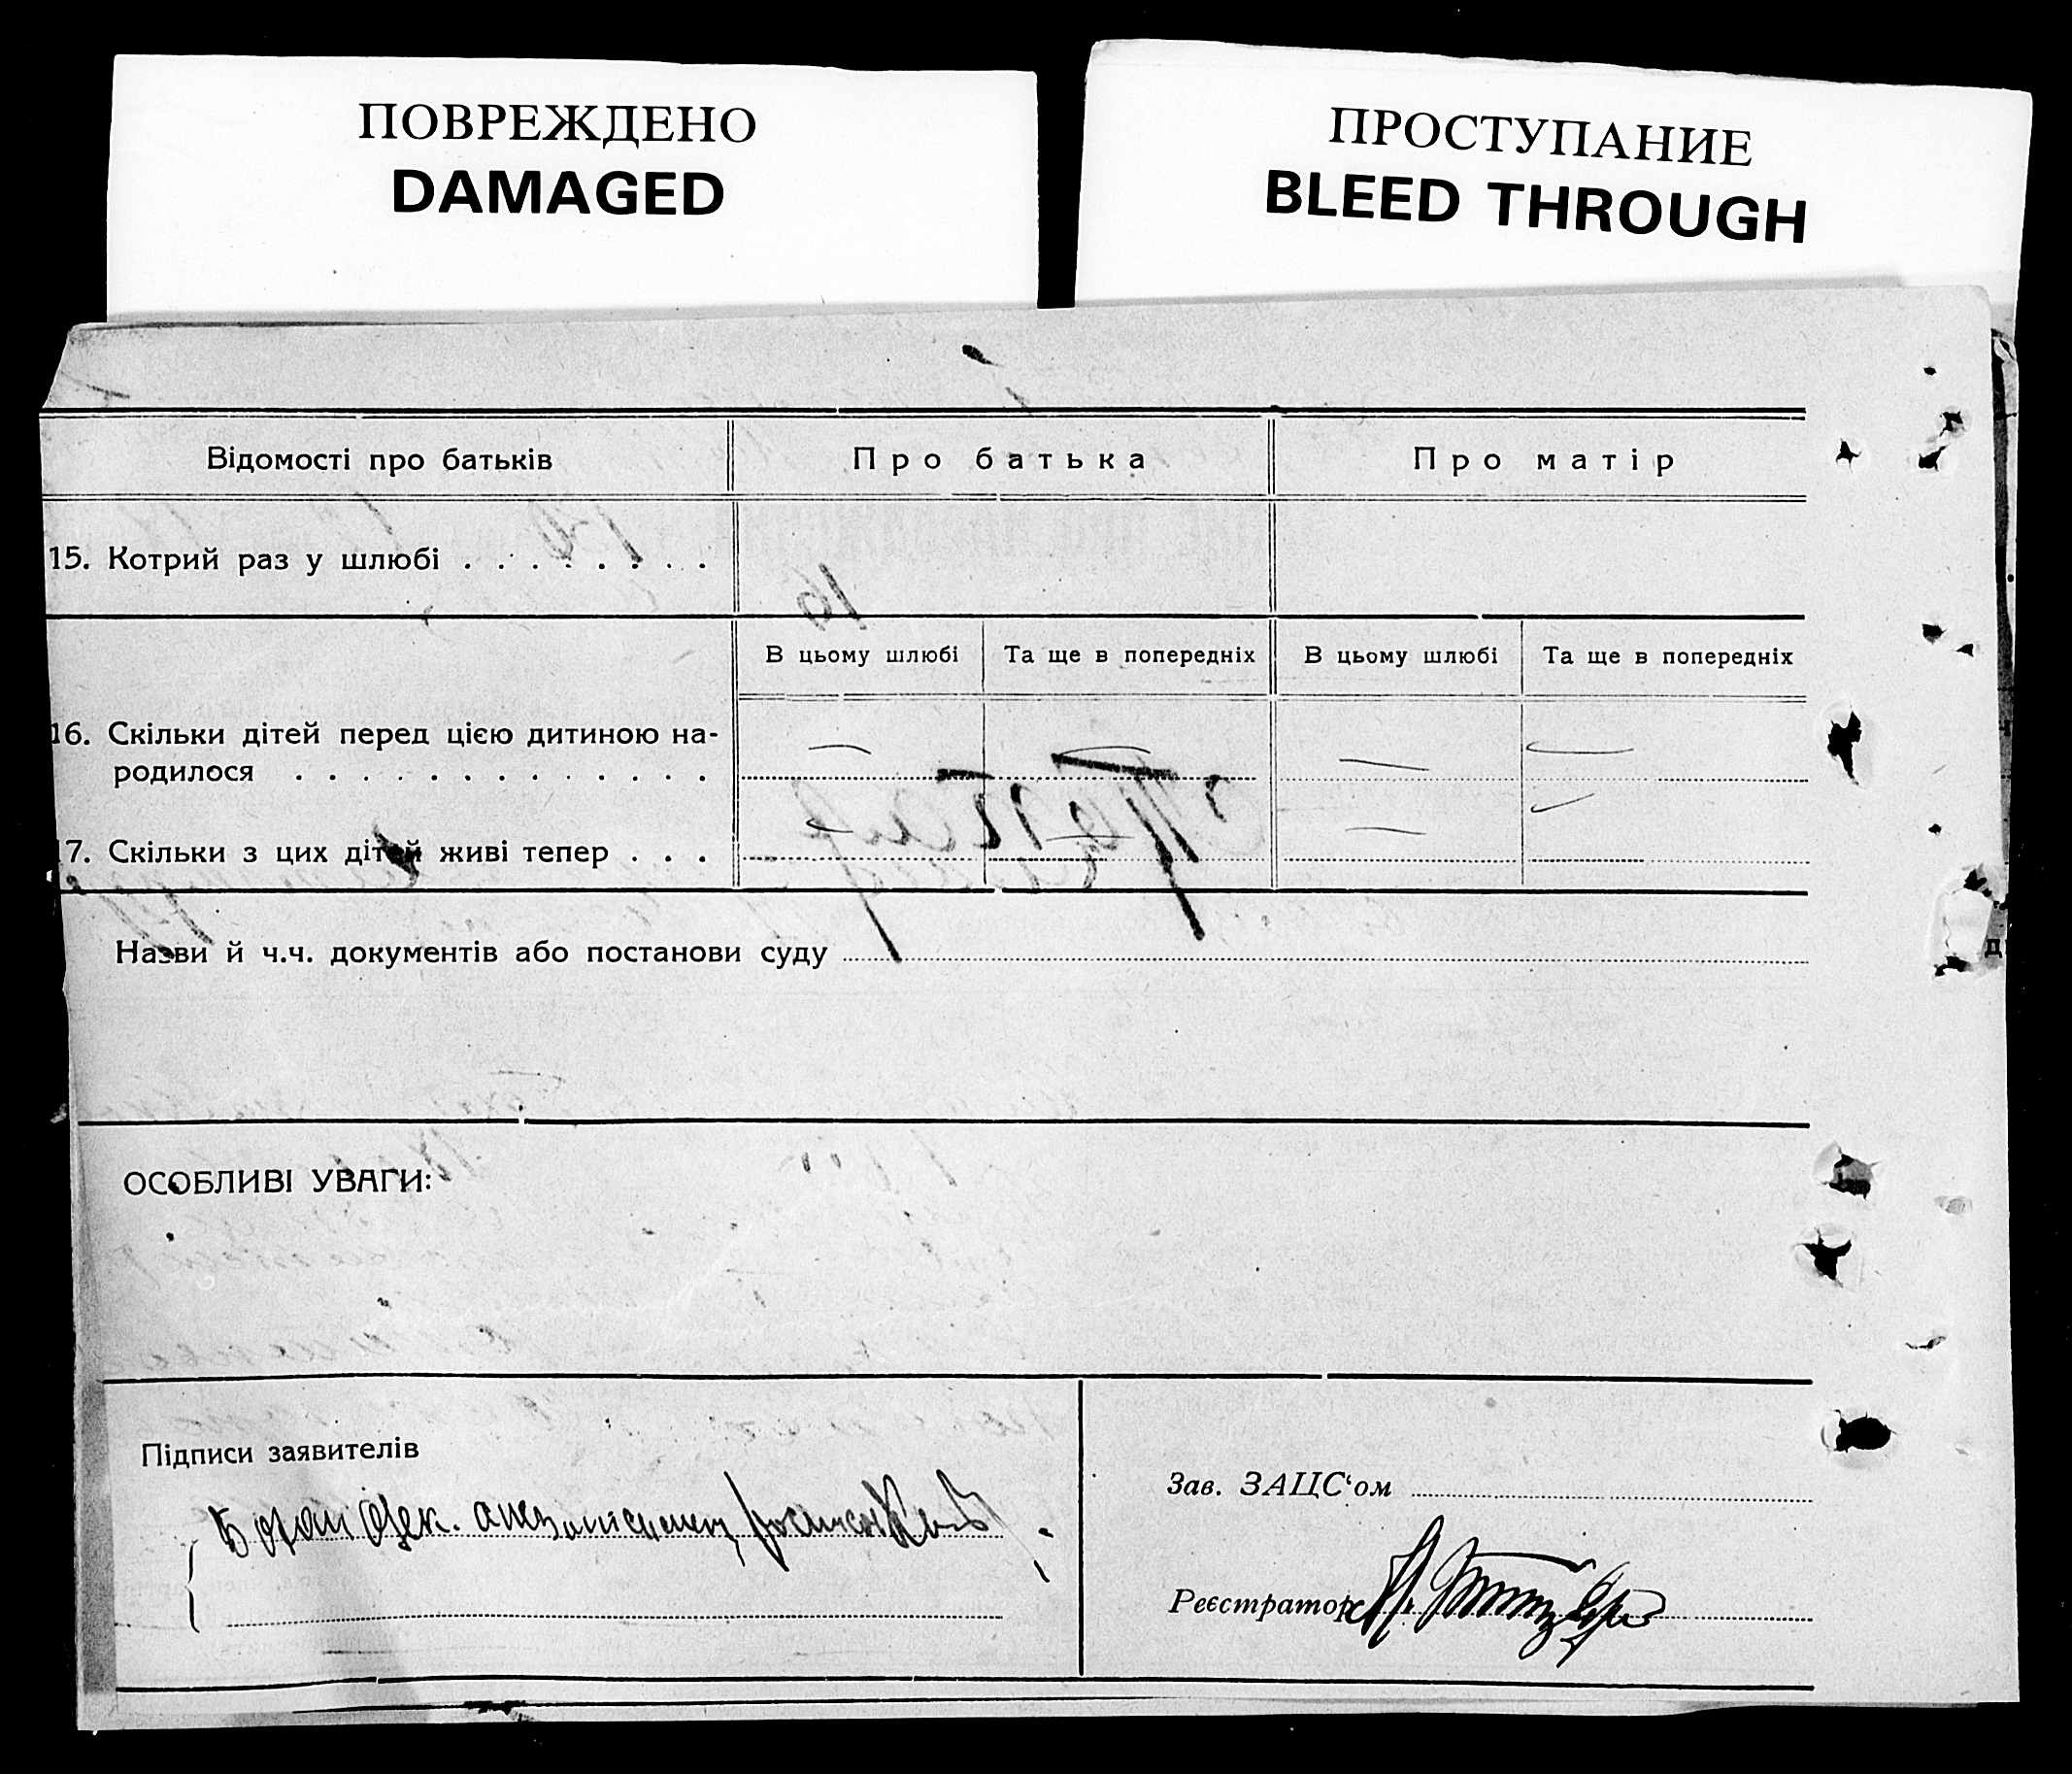 ПОВРЕЖДЕНО
DAMAGED
ПРОСТУПАНИЕ
BLEED THROUGH
Відомості про батьків
Про батька
Про матір
15. Котрий раз у шлюбі . . . . . . . .
В цьому шлюбі
Та ще в попередніх
В цьому шлюбі
Та ще в попередніх
16. Скільки дітей перед цією дитиною на-
родилося . . . . . . . . . . . . .
17. Скільки з цих дітей живі тепер . . .
Назви й ч.ч. документів або постанови суду
ОСОБЛИВІ УВАГИ:
Підписи заявителів
Зав. ЗАЦС‘ом
Реєстратор